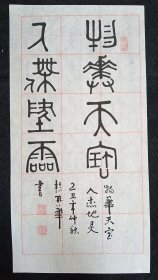 物華天寶
人傑地靈
物華天宝
人杰地灵
丑年仲秋
書